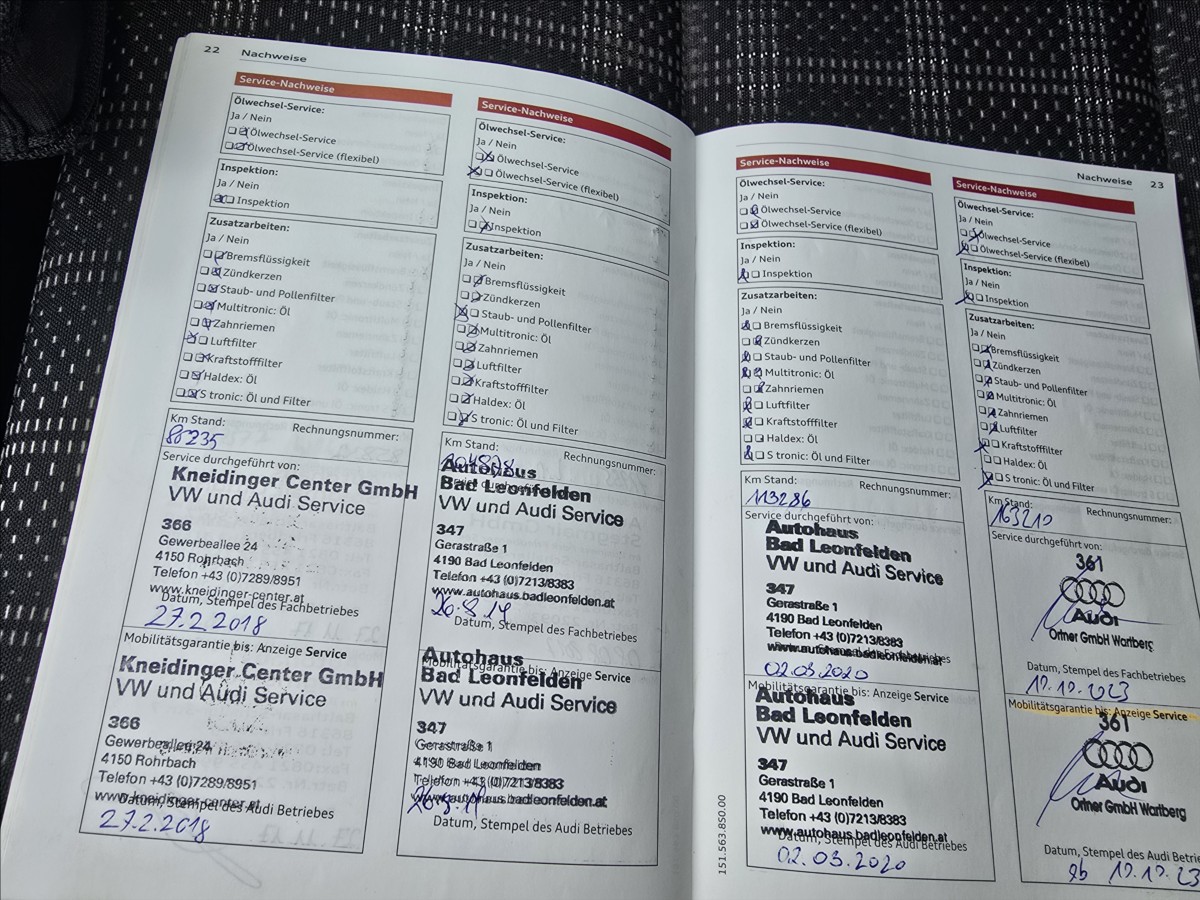 22 Nachweise
Service-Nachweise
Ölwechsel-Service:
Ja / Nein
Ölwechsel-Service
Ölwechsel-Service (flexibel)
Inspektion:
Ja / Nein
Inspektion
Zusatzarbeiten:
Ja / Nein
Bremsflüssigkeit
Zündkerzen
Staub- und Pollenfilter
Multitronic: Öl
Zahnriemen
Luftfilter
Kraftstofffilter
Haldex: Öl
S tronic: Öl und Filter
Km Stand: Rechnungsnummer:
80235
Service durchgeführt von:
Kneidinger Center GmbH
VW und Audi Service
366
Gewerbeallee 24
4150 Rohrbach
Telefon +43 (0)7289/8951
www.kneidinger-center.at
Datum, Stempel des Fachbetriebes
27.2.2018
Mobilitätsgarantie bis: Anzeige Service
Kneidinger Center GmbH
VW und Audi Service
366
Gewerbeallee 24
4150 Rohrbach
Telefon +43 (0)7289/8951
www.kneidinger-center.at
Datum, Stempel des Audi Betriebes
27.2.2018
Service-Nachweise
Ölwechsel-Service:
Ja / Nein
Ölwechsel-Service
Ölwechsel-Service (flexibel)
Inspektion:
Ja / Nein
Inspektion
Zusatzarbeiten:
Ja / Nein
Bremsflüssigkeit
Zündkerzen
Staub- und Pollenfilter
Multitronic: Öl
Zahnriemen
Luftfilter
Kraftstofffilter
Haldex: Öl
S tronic: Öl und Filter
Km Stand: Rechnungsnummer:
Autohaus
Bad Leonfelden
VW und Audi Service
347
Gerastraße 1
4190 Bad Leonfelden
Telefon +43 (0)7213/8383
www.autohaus.badleonfelden.at
Datum, Stempel des Fachbetriebes
Mobilitätsgarantie bis: Anzeige Service
Autohaus
Bad Leonfelden
VW und Audi Service
347
Gerastraße 1
4190 Bad Leonfelden
Telefon +43 (0)7213/8383
www.autohaus.badleonfelden.at
Datum, Stempel des Audi Betriebes
Nachweise 23
Service-Nachweise
Ölwechsel-Service:
Ja / Nein
Ölwechsel-Service
Ölwechsel-Service (flexibel)
Inspektion:
Ja / Nein
Inspektion
Zusatzarbeiten:
Ja / Nein
Bremsflüssigkeit
Zündkerzen
Staub- und Pollenfilter
Multitronic: Öl
Zahnriemen
Luftfilter
Kraftstofffilter
Haldex: Öl
S tronic: Öl und Filter
Km Stand: Rechnungsnummer:
113286
Service durchgeführt von:
Autohaus
Bad Leonfelden
VW und Audi Service
347
Gerastraße 1
4190 Bad Leonfelden
Telefon +43 (0)7213/8383
www.autohaus.badleonfelden.at
02.03.2020
Mobilitätsgarantie bis: Anzeige Service
Autohaus
Bad Leonfelden
VW und Audi Service
347
Gerastraße 1
4190 Bad Leonfelden
Telefon +43 (0)7213/8383
www.autohaus.badleonfelden.at
Datum, Stempel des Audi Betriebes
02.03.2020
151.563.8S0.00
Service-Nachweise
Ölwechsel-Service:
Ja / Nein
Ölwechsel-Service
Ölwechsel-Service (flexibel)
Inspektion:
Ja / Nein
Inspektion
Zusatzarbeiten:
Ja / Nein
Bremsflüssigkeit
Zündkerzen
Staub- und Pollenfilter
Multitronic: Öl
Zahnriemen
Luftfilter
Kraftstofffilter
Haldex: Öl
S tronic: Öl und Filter
Km Stand: Rechnungsnummer:
163210
Service durchgeführt von:
361
Audi
Ortner GmbH Wartberg
Datum, Stempel des Fachbetriebes
Mobilitätsgarantie bis: Anzeige Service
361
Audi
Ortner GmbH Wartberg
Datum, Stempel des Audi